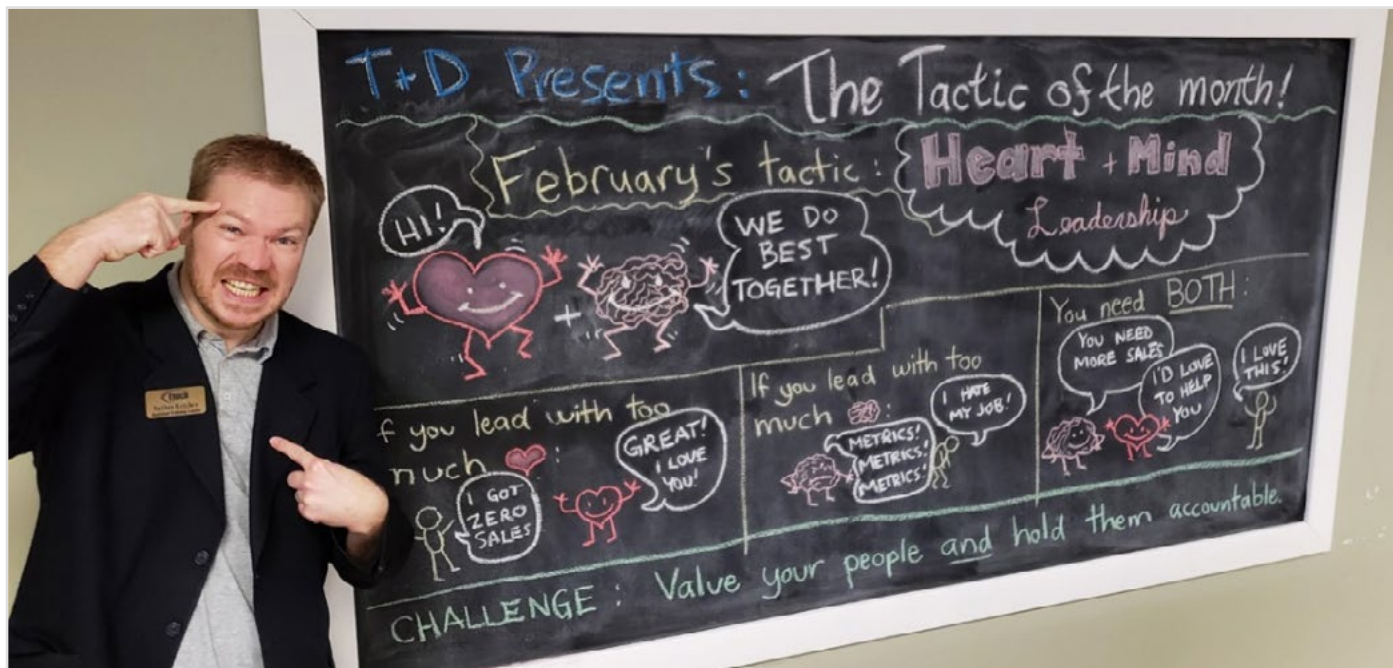 T+D Presents: The Tactic of the month!
February's tactic:
Heart + Mind
Leadership
HI!
+
WE DO
BEST
TOGETHER!
f you lead with too
much :
I GOT
ZERO
SALES
GREAT!
I LOVE
YOU!
If you lead with too
much :
METRICS!
METRICS!
METRICS!
I HATE
MY JOB!
You need BOTH:
YOU NEED
MORE SALES
I'D LOVE
TO HELP
YOU
I LOVE
THIS!
CHALLENGE: Value your people and hold them accountable.